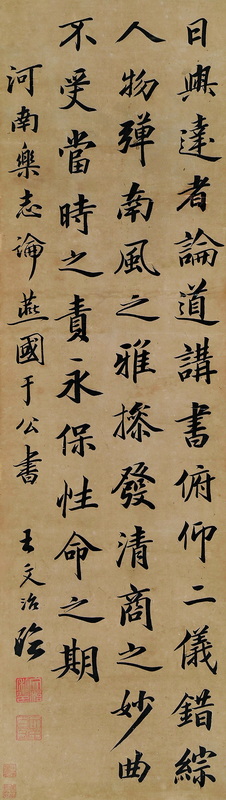 日與達者論道講書俯仰二儀錯綜
人物彈南風之雅操發清商之妙曲
不受當時之責永保性命之期
河南樂志論燕國于公書
王文治臨